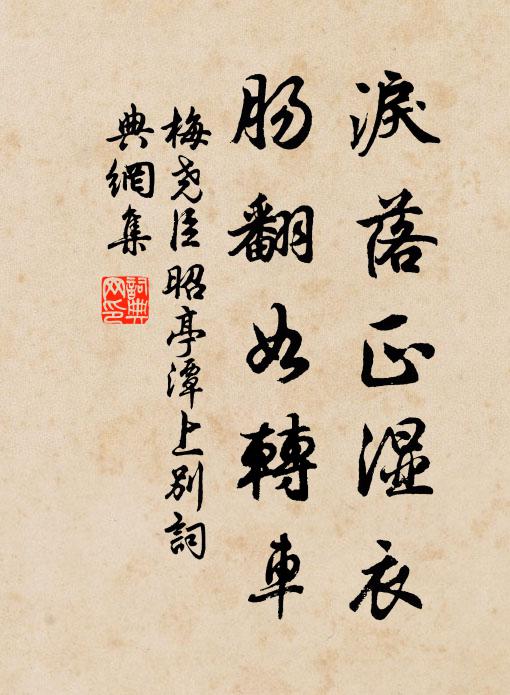 淚落正濕衣
腸翻如轉車
梅堯臣昭亭潭上別詞
典網集
詞典網印